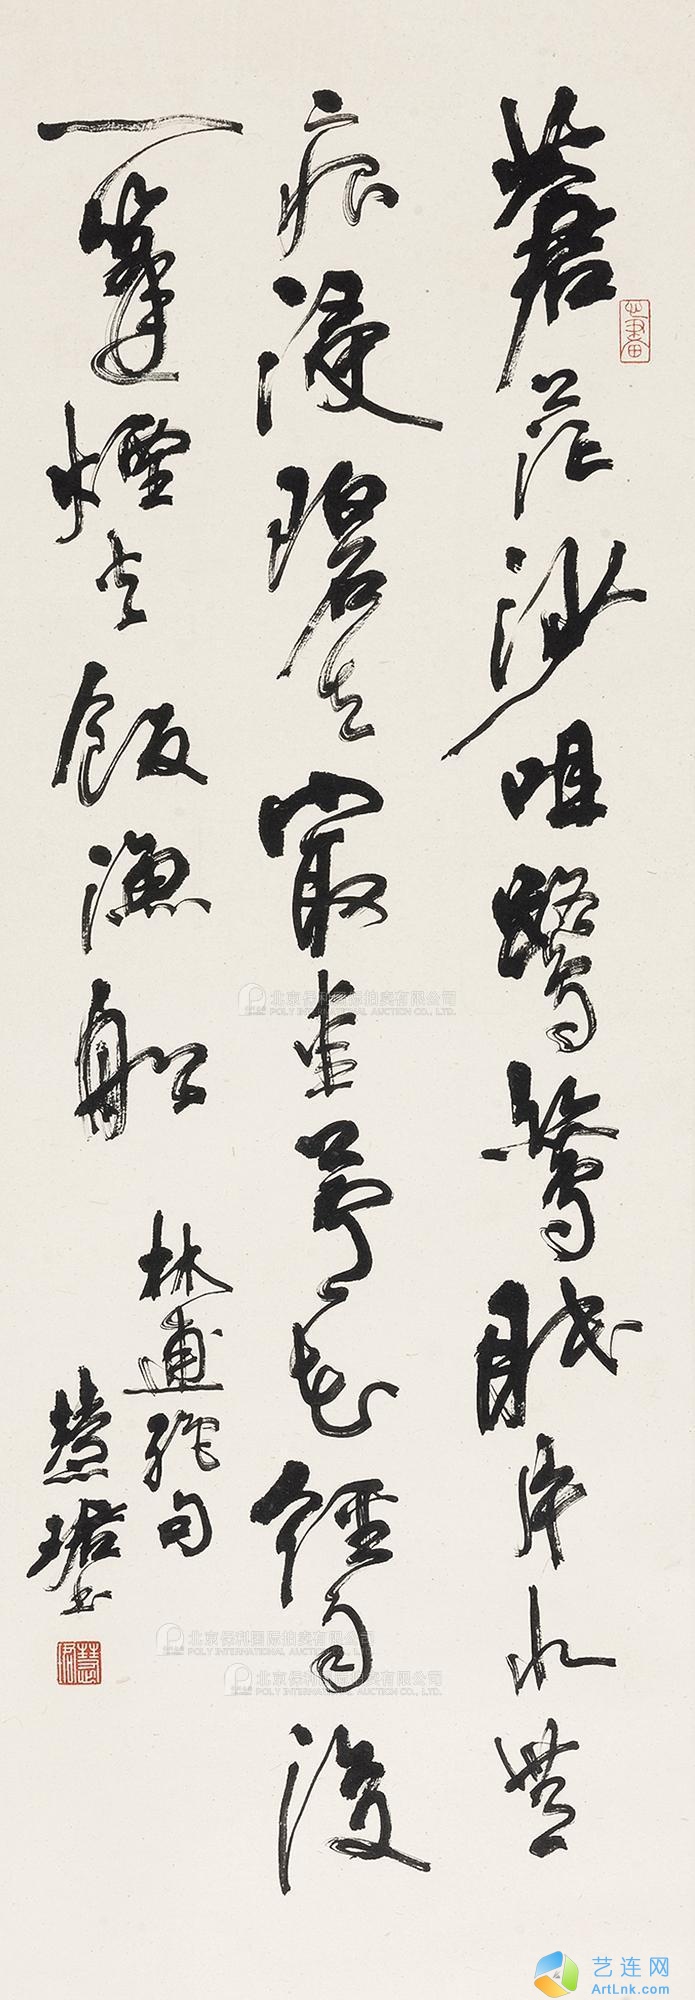 蒼茫沙咀鷺鷥眠片水無
痕浸碧天最愛芦花經雨後
一篷煙火飯漁船
林逋絕句
慧珺書
心畫
慧珺
北京保利国际拍卖有限公司
POLY INTERNATIONAL AUCTION CO., LTD.
北京保利国际拍卖有限公司
POLY INTERNATIONAL AUCTION CO., LTD.
北京保利国际拍卖有限公司
POLY INTERNATIONAL AUCTION CO., LTD.
艺连网
ArtLnk.com